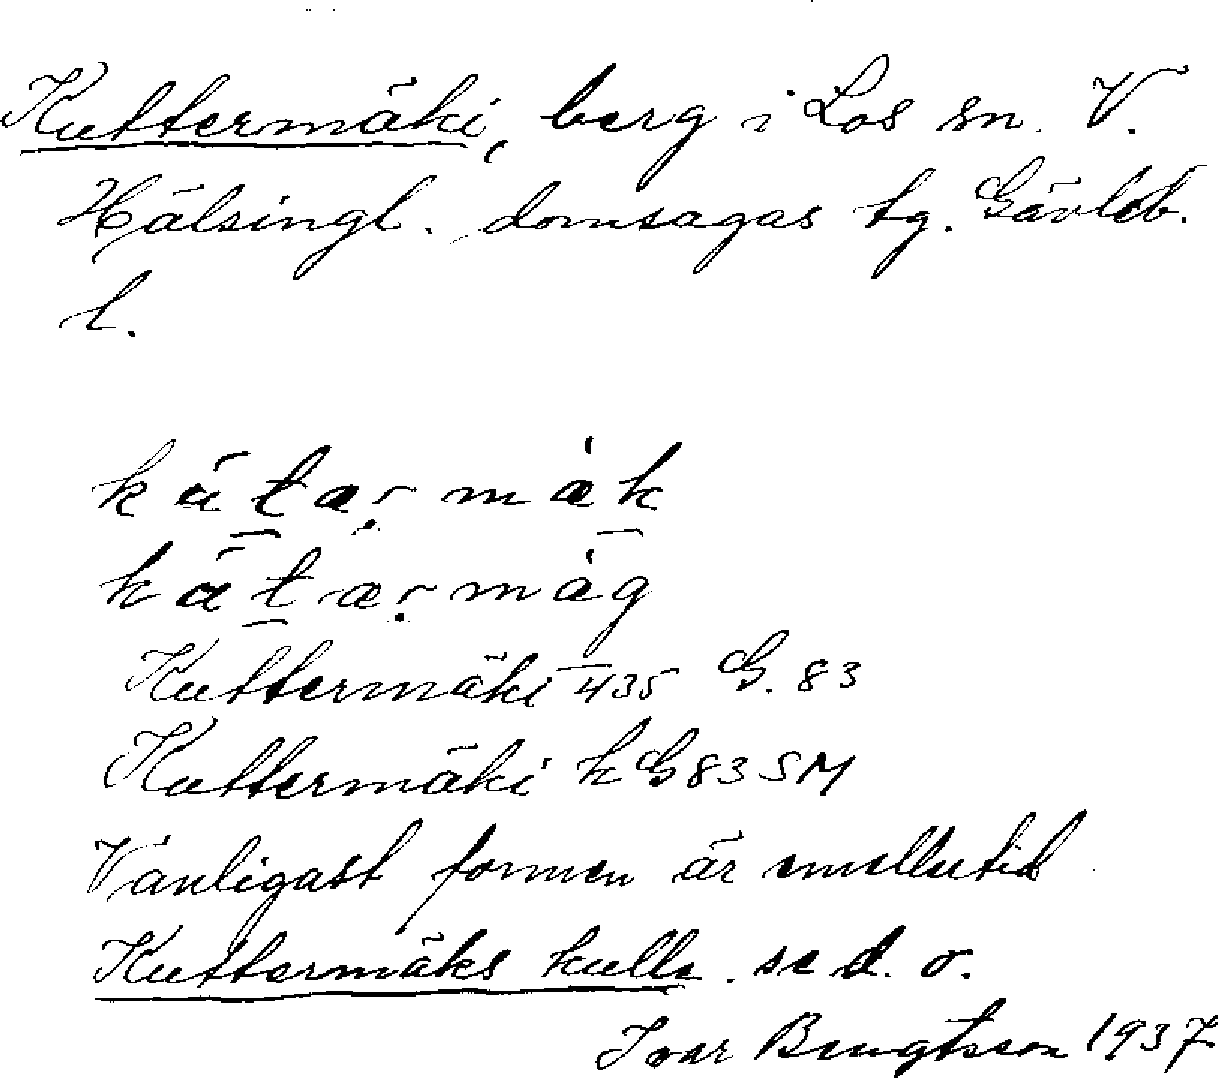 Kuttermäki, berg i Los sn. V.
Hälsingl. domsagas tg. Gävleb.
l.
kátạrmàk
kátạrmàg
Kuttermäki 435 G. 83
Kuttermäki k G 83 SM
Vanligast formen är emellertid
Kuttermäks kulle. se d. o.
Ivar Bengtsson 1937